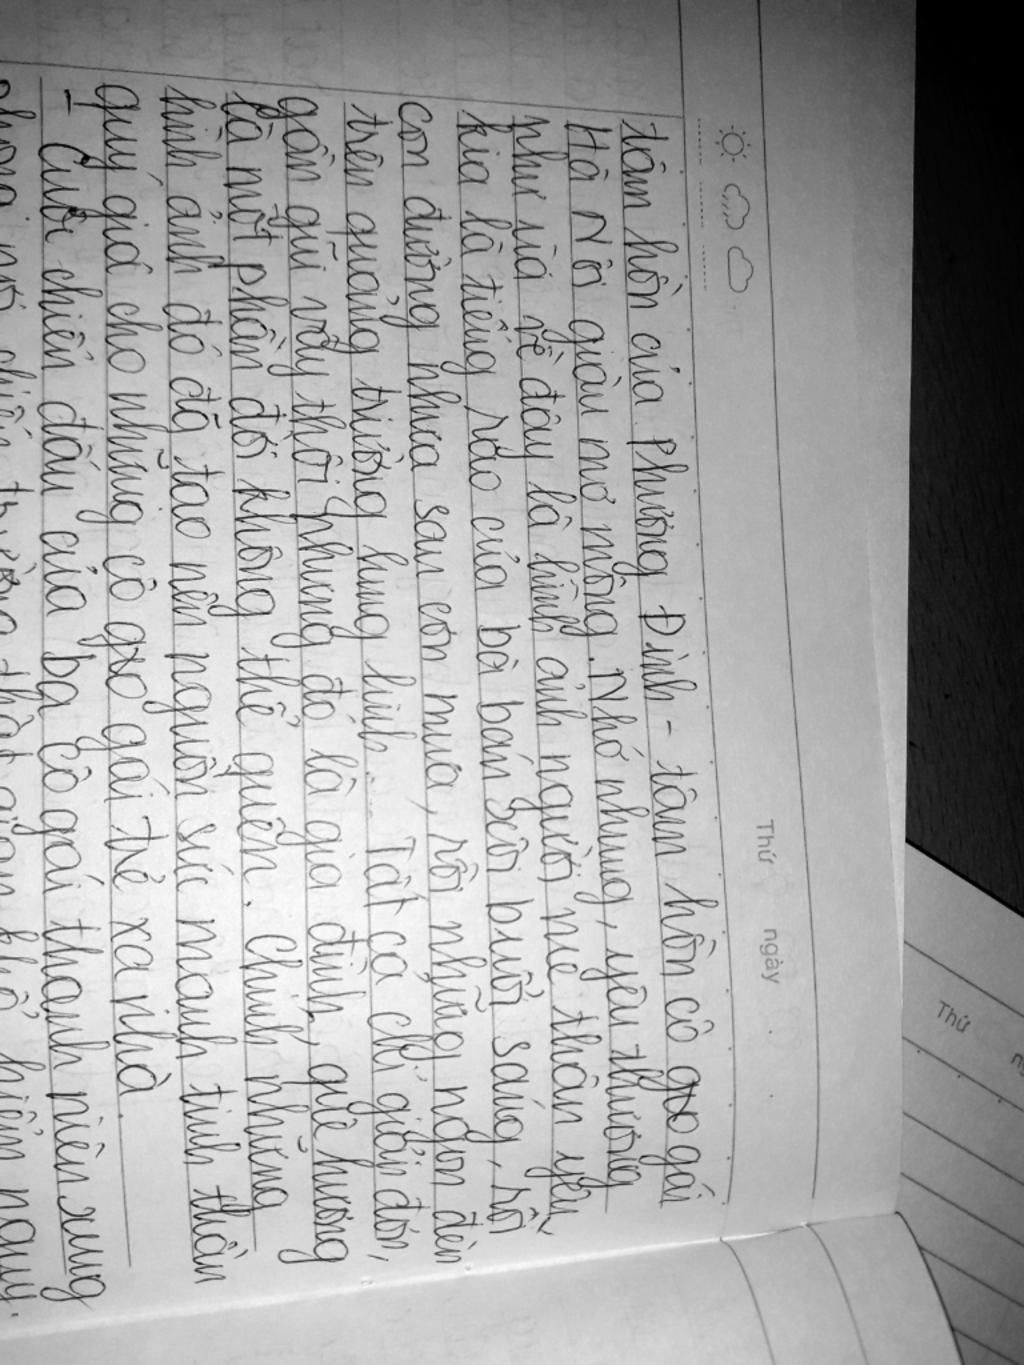 Thứ ngày
tâm hồn của Phương Định - tâm hồn cô gái
Hà Nội giàu mơ mộng. Nhớ nhung, yêu thương
như ùa về đây là hình ảnh người mẹ thân yêu,
kia là tiếng rao của bà bán xôi buổi sáng, rồi
con đường nhựa sau cơn mưa, rồi những ngọn đèn
trên quảng trường lung linh... Tất cả chỉ giản đơn,
gần gũi vậy thôi nhưng đó là gia đình, quê hương
là một phần đời không thể quên. Chính những
hình ảnh đó đã tạo nên nguồn sức mạnh tinh thần
quý giá cho những cô gái trẻ xa nhà.
- Cuộc chiến đấu của ba cô gái thanh niên xung
phong nơi chiến trường thật gian khổ, hiểm nguy.
Thứ